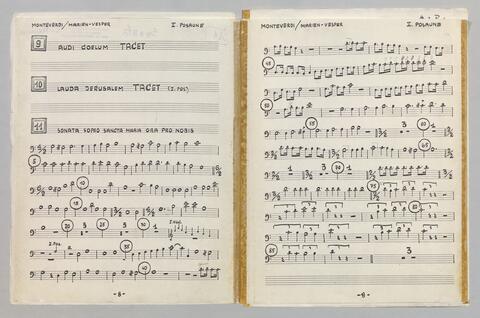 MONTEVERDI/MARIEN-VESPER I. POSAUNE
9 AUDI COELUM TACET
10 LAUDA JERUSALEM TACET (I. POS)
11 SONATA SOPRA SANCTA MARIA ORA PRO NOBIS
5
10
15
20 3 25 3 30
2. Pos. 35
40
-8-
MONTEVERDI/MARIEN-VESPER I. POSAUNE
45
50
55 3 60 1
65
1 3 70 1
75
80
85 3
-9-